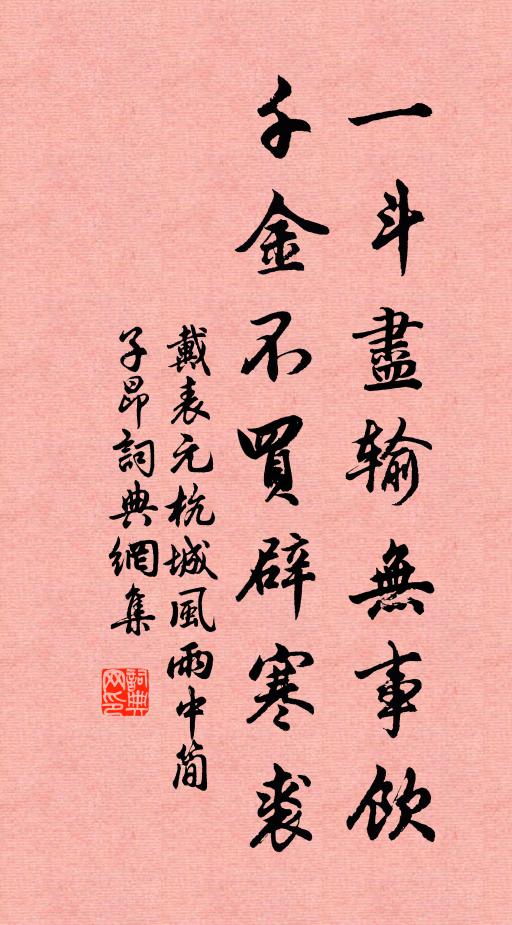 一斗盡输無事飲
千金不買辟寒裘
戴表元杭城風雨中简
子昂詞典網集
詞典网印